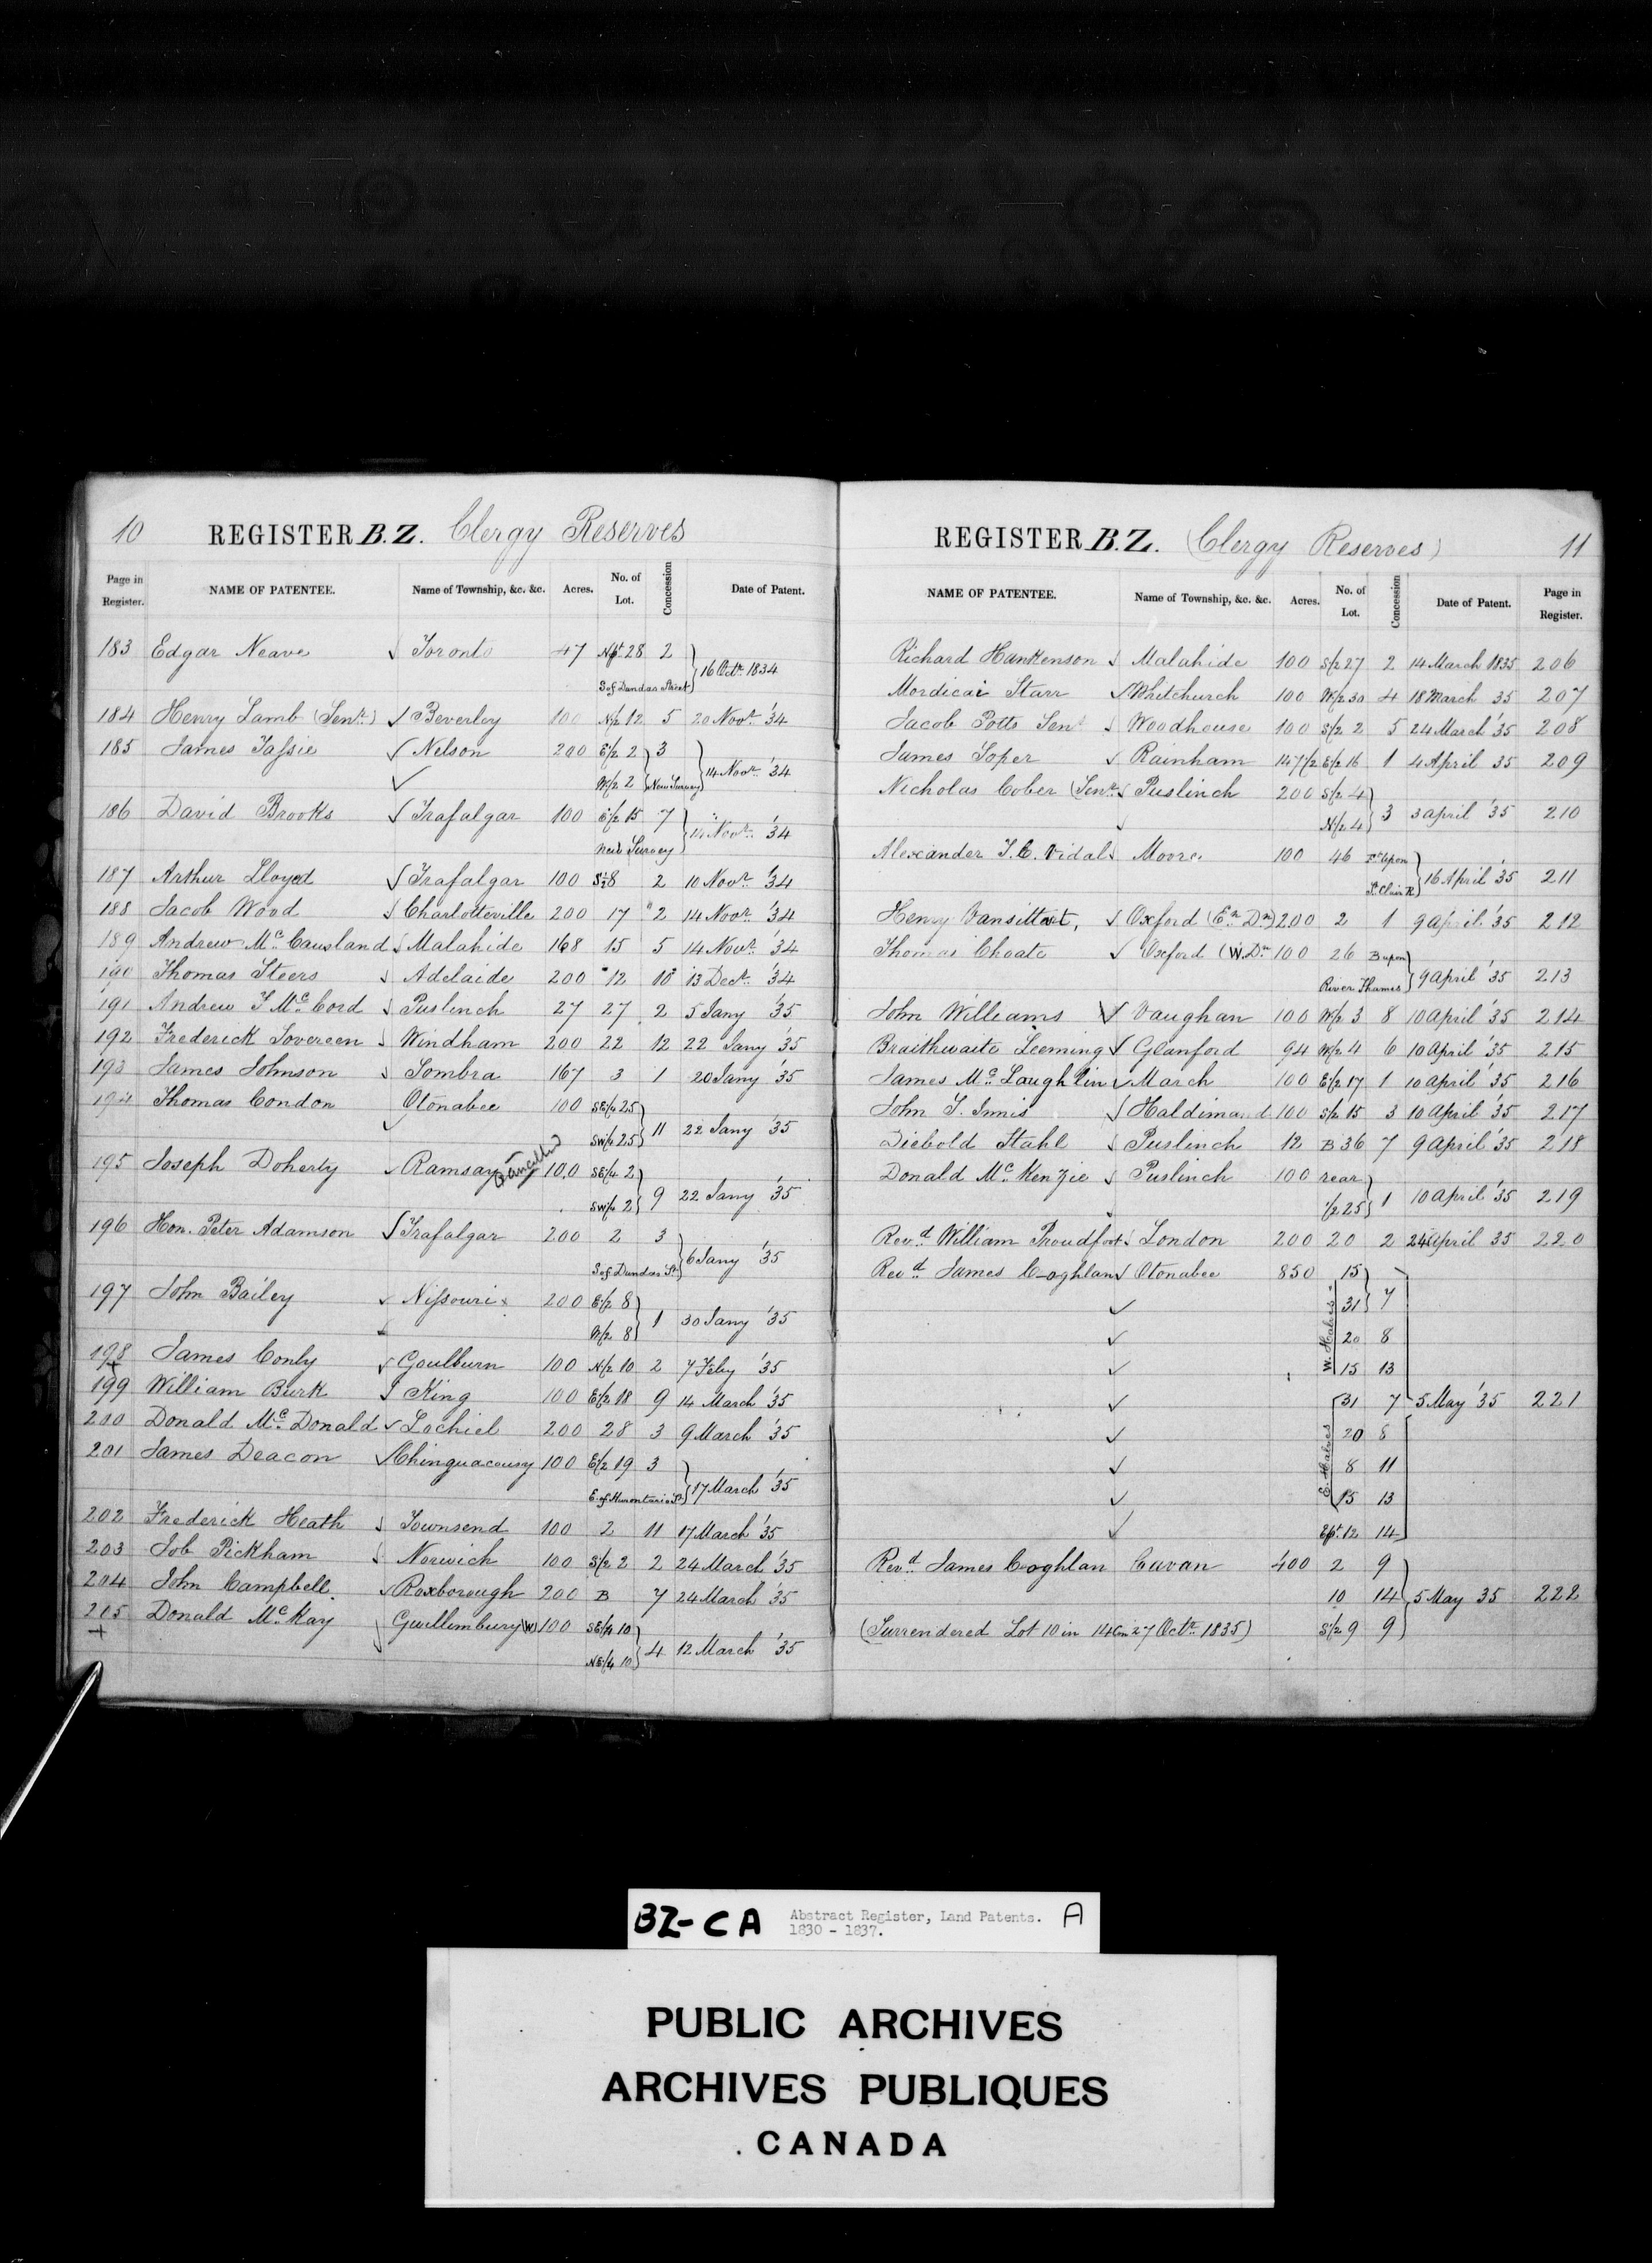 10 REGISTER B.Z. Clergy Reserves
Page in Register. NAME OF PATENTEE. Name of Township, &c. &c. Acres. No. of Lot. Concession Date of Patent.
183 Edgar Neave √ Toronto 47 Npt 28 2 } 16 Octr. 1834
S of Dundas Street
184 Henry Lamb (Senr.) √ Beverley 100 N/2 12 5 20 Novr. '34
185 James Tassie √ Nelson 200 E/2 2 } 3 } 14 Novr. '34
√ W/2 2 } New Survey
186 David Brooks √ Trafalgar 100 E/2 15 7 } 14 Novr. '34
New Survey
187 Arthur Lloyd √ Trafalgar 100 S½ 8 2 10 Novr. '34
188 Jacob Wood √ Charlotteville 200 17 2 14 Novr. '34
189 Andrew Mc Causland √ Malahide 168 15 5 14 Novr. '34
190 Thomas Steers √ Adelaide 200 12 10 13 Decr. '34
191 Andrew T Mc Cord √ Puslinch 27 27 2 5 Jany '35
192 Frederick Sovereen √ Windham 200 22 12 22 Jany '35
193 James Johnson √ Sombra 167 3 1 20 Jany '35
194 Thomas Condon Otonabee 100 SE/4 25 } 11 22 Jany '35
√ SW/4 25 }
195 Joseph Doherty √ Ramsay Cancelled 100 SE/4 2 } 9 22 Jany '35
SW/4 2 }
196 Hon. Peter Adamson √ Trafalgar 200 2 3 } 6 Jany '35
S of Dundas St.
197 John Bailey √ Nissouri 200 E/2 8 } 1 30 Jany '35
√ W/2 8 }
198 James Conly √ Goulburn 100 N/2 10 2 7 Feby '35
+
199 William Burk √ King 100 E/2 18 9 14 March '35
200 Donald Mc Donald √ Lochiel 200 28 3 9 March '35
201 James Deacon √ Chinguacousy 100 E/2 19 3 } 17 March '35
E of Hurontario St
202 Frederick Heath √ Townsend 100 2 11 17 March '35
203 Job Pickham √ Norwich 100 S/2 2 2 24 March '35
204 John Campbell √ Roxborough 200 B 7 24 March '35
205 Donald Mc Kay √ Gwillimbury (W) 100 SE/4 10 } 4 12 March '35
+ NE/4 10 }
REGISTER B.Z. (Clergy Reserves) 11
NAME OF PATENTEE. Name of Township, &c. &c. Acres. No. of Lot. Concession Date of Patent. Page in Register.
Richard Hankenson √ Malahide 100 S/2 27 2 14 March 1835 206
Mordicai Starr √ Whitchurch 100 W/2 30 4 18 March 35 207
Jacob Potts Senr √ Woodhouse 100 S/2 2 5 24 March '35 208
James Soper √ Rainham 147½ E/2 16 1 4 April 35 209
Nicholas Cober (Senr. √ Puslinch 200 S/2 4 } 3 3 April '35 210
√ N/2 4 }
Alexander T. E. Vidal √ Moore 100 46 Ft upon } 16 April '35 211
St. Clair R
Henry Vansittart, √ Oxford (En. Dn.) 200 2 1 9 April '35 212
Thomas Choate √ Oxford (W. Dn. 100 26 B upon } 9 April '35 213
River Thames
John Williams √ Vaughan 100 W/2 3 8 10 April '35 214
Braithwaite Leeming √ Glanford 94 W/2 4 6 10 April '35 215
James Mc Laughlin √ March 100 E/2 17 1 10 April '35 216
John T. Innis √ Haldimand 100 S/2 15 3 10 April '35 217
Diebold Stahl √ Puslinch 12 B 36 7 9 April '35 218
Donald Mc Kenzie √ Puslinch 100 rear } 1 10 April '35 219
√ ½ 25 }
Revd. William Proudfoot √ London 200 20 2 24 April 35 220
Revd. James Coghlan √ Otonabee 850 15 }
√ W. Halves 31 } 7
√ 20 8
√ 15 13
√ 31 7 5 May '35 221
√ E. Halves 20 8
√ 8 11
√ 15 13
√ Ept. 12 14
Revd. James Coghlan Cavan 400 2 9
10 14 } 5 May 35 222
(Surrendered Lot 10 in 14 Con 27 Octr. 1835) S/2 9 9
BZ-CA Abstract Register, Land Patents. A
1830 - 1837.
PUBLIC ARCHIVES
ARCHIVES PUBLIQUES
CANADA